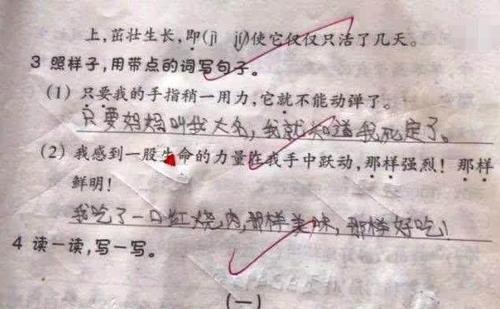 上,茁壮生长,即(jī jí)使它仅仅只活了几天。
3 照样子,用带点的词写句子。
(1) 只要我的手指稍一用力,它就不能动弹了。
只要妈妈叫我大名,我就知道我死定了。
(2) 我感到一股生命的力量在我手中跃动,那样强烈!那样
鲜明!
我吃了一口红烧肉,那样美味,那样好吃!
4 读一读,写一写。
(一)